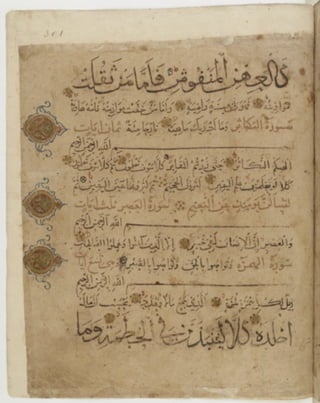 كالعهن المنفوش فاما من ثقلت
موازينه فهو في عيشة راضية واما من خفت موازينه فامه هاوية
سورة التكاثر وما ادريك ماهيه نار حامية ثمان ايات
بسم الله الرحمن الرحيم
الهيكم التكاثر حتى زرتم المقابر كلا سوف تعلمون ثم كلا سوف تعلمون
كلا لو تعلمون علم اليقين لترون الجحيم ثم لترونها عين اليقين ثم
لتسالن يومئذ عن النعيم سورة العصر ثلث ايات
بسم الله الرحمن الرحيم
والعصر ان الانسان لفي خسر الا الذين امنوا وعملوا الصالحات
سورة الهمزة وتواصوا بالحق وتواصوا بالصبر ايات
بسم الله الرحمن الرحيم
ويل لكل همزة لمزة الذي جمع مالا وعدده يحسب ان ماله
اخلده كلا لينبذن في الحطمة وما